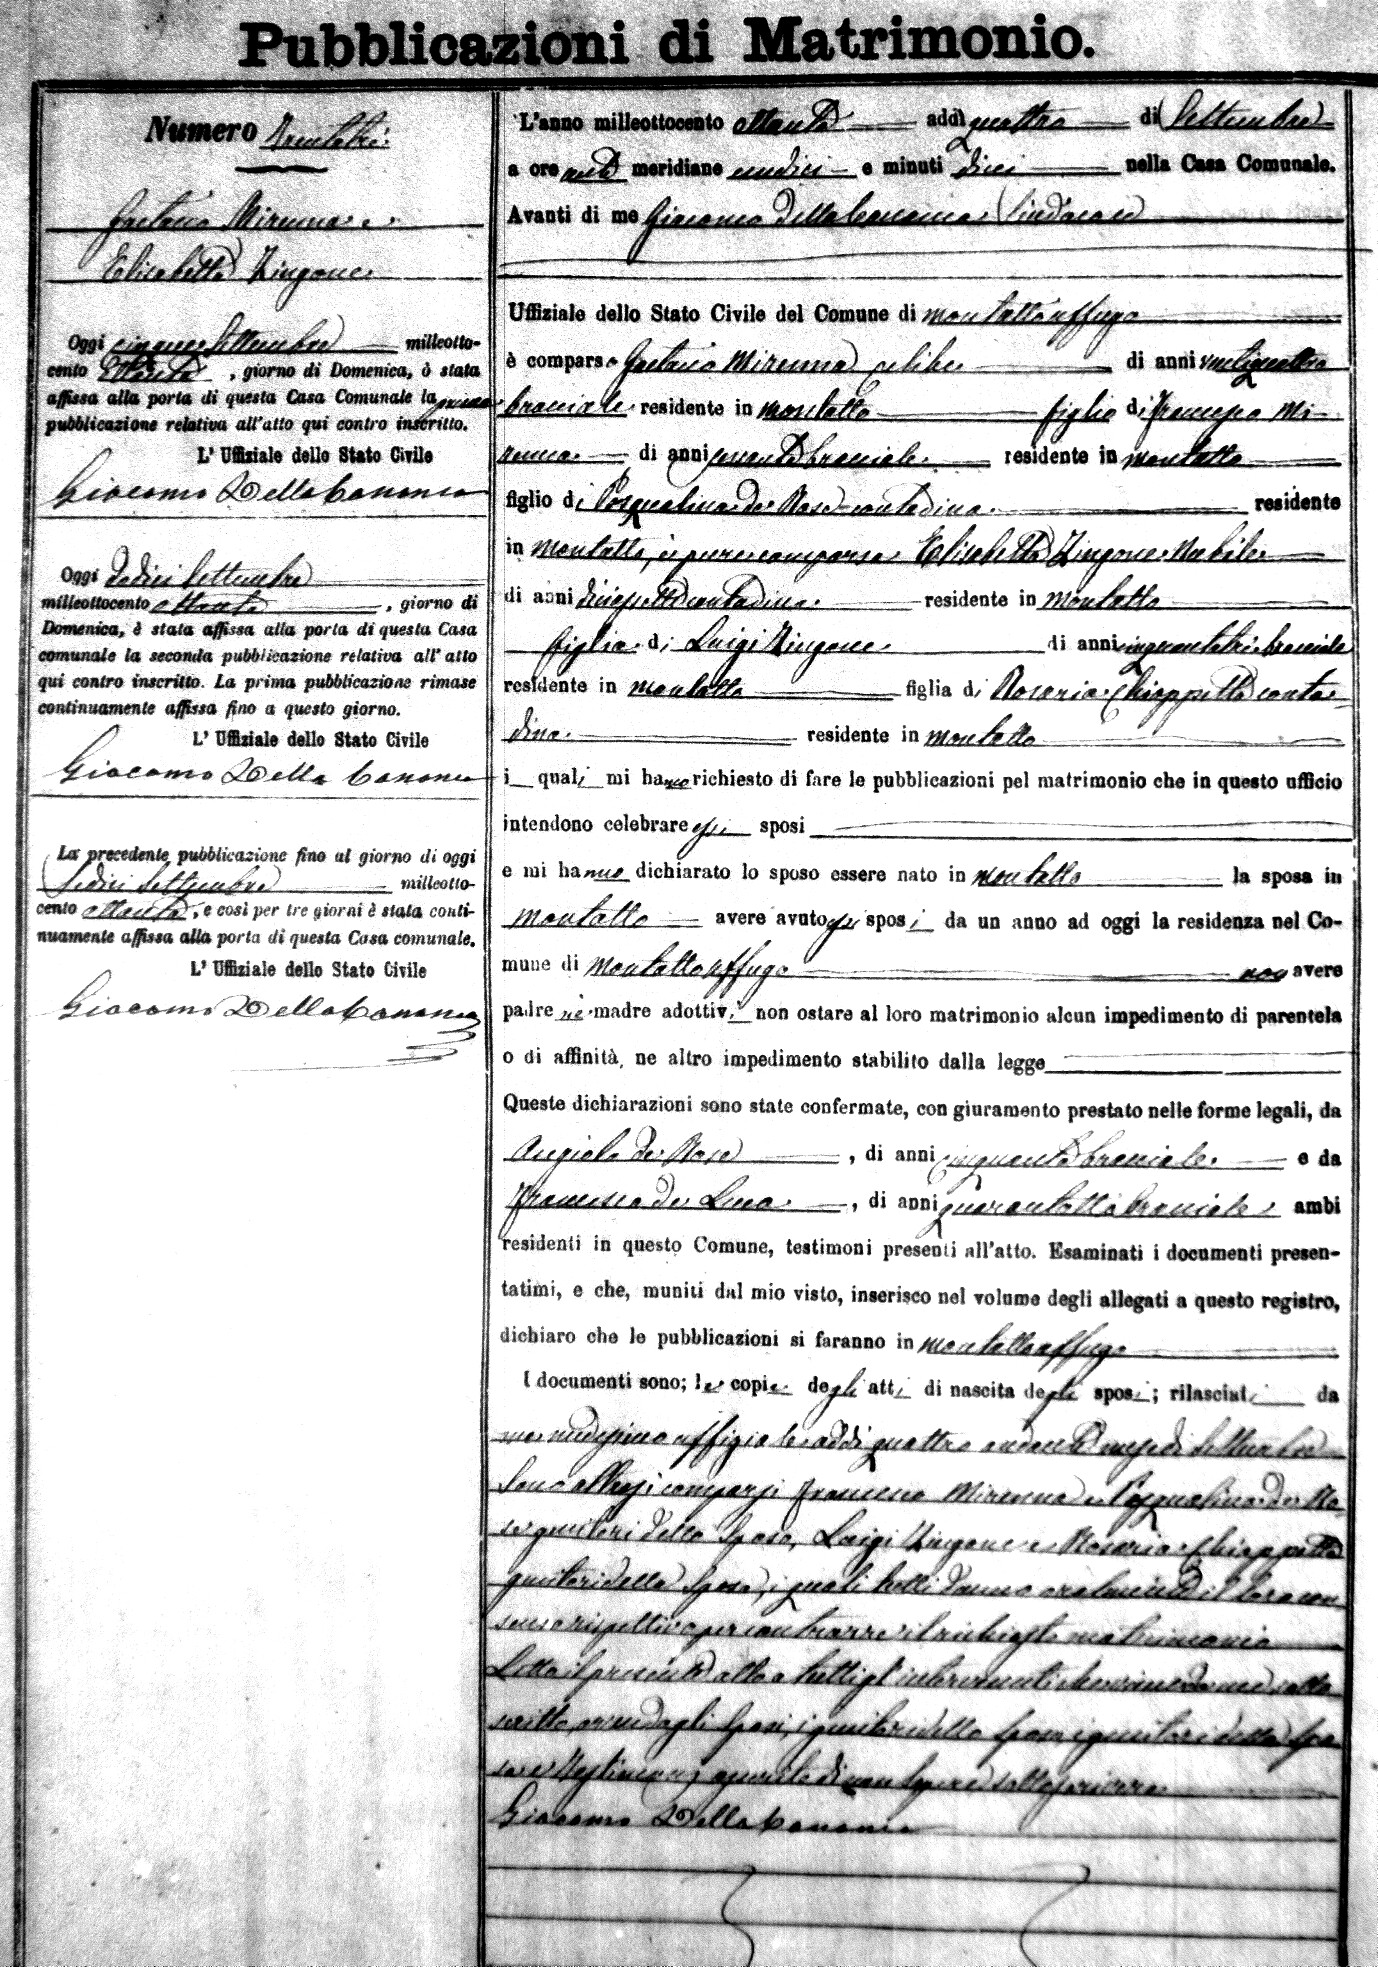 Pubblicazioni di Matrimonio.
Numero Trentatre
Gaetano Mirenna e
Elisabetta Zingone
Oggi cinque Settembre milleotto-
cento Ottanta, giorno di Domenica, è stata
affissa alla porta di questa Casa Comunale la prima
pubblicazione relativa all'atto qui contro inscritto.
L' Uffiziale dello Stato Civile
Giacomo Della Cananea
Oggi dodici Settembre
milleottocento ottanta, giorno di
Domenica, è stata affissa alla porta di questa Casa
comunale la seconda pubblicazione relativa all' atto
qui contro inscritto. La prima pubblicazione rimase
continuamente affissa fino a questo giorno.
L' Uffiziale dello Stato Civile
Giacomo Della Cananea
La precedente pubblicazione fino al giorno di oggi
Sedici Settembre milleotto-
cento ottanta, e così per tre giorni è stata conti-
nuamente affissa alla porta di questa Casa comunale.
L' Uffiziale dello Stato Civile
Giacomo Della Cananea
L'anno milleottocento ottanta addì quattro di Settembre
a ore anti meridiane undici e minuti dieci nella Casa Comunale.
Avanti di me Giacomo Della Cananea Sindaco
Uffiziale dello Stato Civile del Comune di Montalto Uffugo
è comparso Gaetano Mirenna celibe di anni ventiquattro
bracciale residente in Montalto figlio di Francesco Mi-
renna di anni bracciale residente in Montalto
figlio di Pasqualina de Rose contadina residente
in Montalto, è pure comparsa Elisabetta Zingone Nubile
di anni diciassette contadina residente in Montalto
figlia di Luigi Zingone di anni cinquantatre bracciale
residente in Montalto figlia di Rosaria Chiappetta conta-
dina residente in Montalto
i quali mi hanno richiesto di fare le pubblicazioni pel matrimonio che in questo ufficio
intendono celebrare essi sposi
e mi hanno dichiarato lo sposo essere nato in Montalto la sposa in
Montalto avere avuto essi sposi da un anno ad oggi la residenza nel Co-
mune di Montalto Uffugo non avere
padre nè madre adottivi non ostare al loro matrimonio alcun impedimento di parentela
o di affinità, ne altro impedimento stabilito dalla legge
Queste dichiarazioni sono state confermate, con giuramento prestato nelle forme legali, da
Angiolo de Rose, di anni cinquanta bracciale e da
Francesco de Luca, di anni quarantotto bracciale ambi
residenti in questo Comune, testimoni presenti all'atto. Esaminati i documenti presen-
tatimi, e che, muniti dal mio visto, inserisco nel volume degli allegati a questo registro,
dichiaro che le pubblicazioni si faranno in Montalto Uffugo
I documenti sono; le copie degli atti di nascita degli sposi; rilasciati da
me medesimo uffiziale addì quattro andante mese di Settembre
Sono altresì comparsi Francesco Mirenna e Pasqualina de Ro-
se genitori dello Sposo, Luigi Zingone e Rosaria Chiappetta
genitori della Sposa, i quali tutti danno oralmente il loro con
senso rispettivo per contrarre il richiesto matrimonio
Letto il presente atto a tutti gl'intervenuti viene da me sotto
scritto, avendo gli Sposi, i genitori dello Sposo i genitori della Spo
sa e testimoni asserito di non sapere sottoscrivere
Giacomo Della Cananea